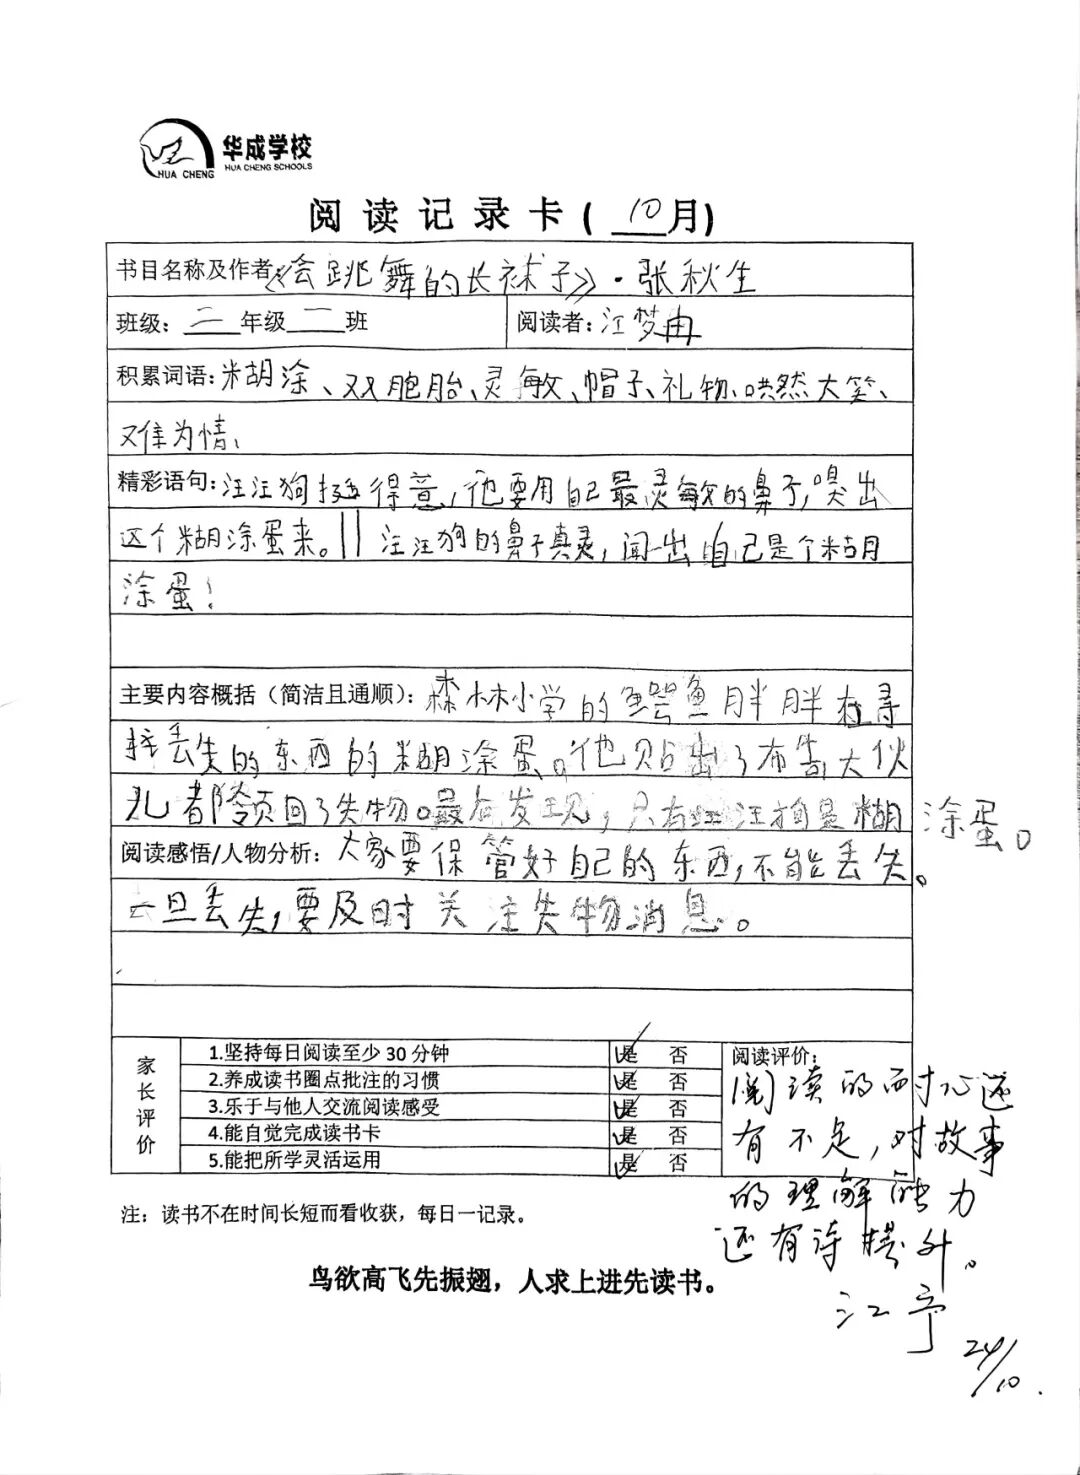 华成学校
HUA CHENG SCHOOLS
HUA CHENG
阅读记录卡(10月)
书目名称及作者:《会跳舞的长袜子》·张秋生
班级:二年级一班 阅读者:江梦冉
积累词语:糊涂、双胞胎、灵敏、帽子、礼物、哄然大笑、
难为情、
精彩语句:汪汪狗挺得意,他要用自己最灵敏的鼻子,嗅出
这个糊涂蛋来。|| 汪汪狗的鼻子真灵,闻一出自己是个糊
涂蛋!
主要内容概括(简洁且通顺):森林小学的鳄鱼胖胖在寻
找丢失的东西的糊涂蛋。他贴出了布告大伙
儿都领回了失物。最后发现,只有汪汪狗是糊涂蛋。
阅读感悟/人物分析:大家要保管好自己的东西,不能丢失。
一旦丢失,要及时关注失物消息。
家长评价
1.坚持每日阅读至少30分钟 是 否
2.养成读书圈点批注的习惯 是 否
3.乐于与他人交流阅读感受 是 否
4.能自觉完成读书卡 是 否
5.能把所学灵活运用 是 否
阅读评价:
阅读的耐心还
有不足,对故事
的理解能力
还有待提升。
江宁
24/10.
注:读书不在时间长短而看收获,每日一记录。
鸟欲高飞先振翅,人求上进先读书。